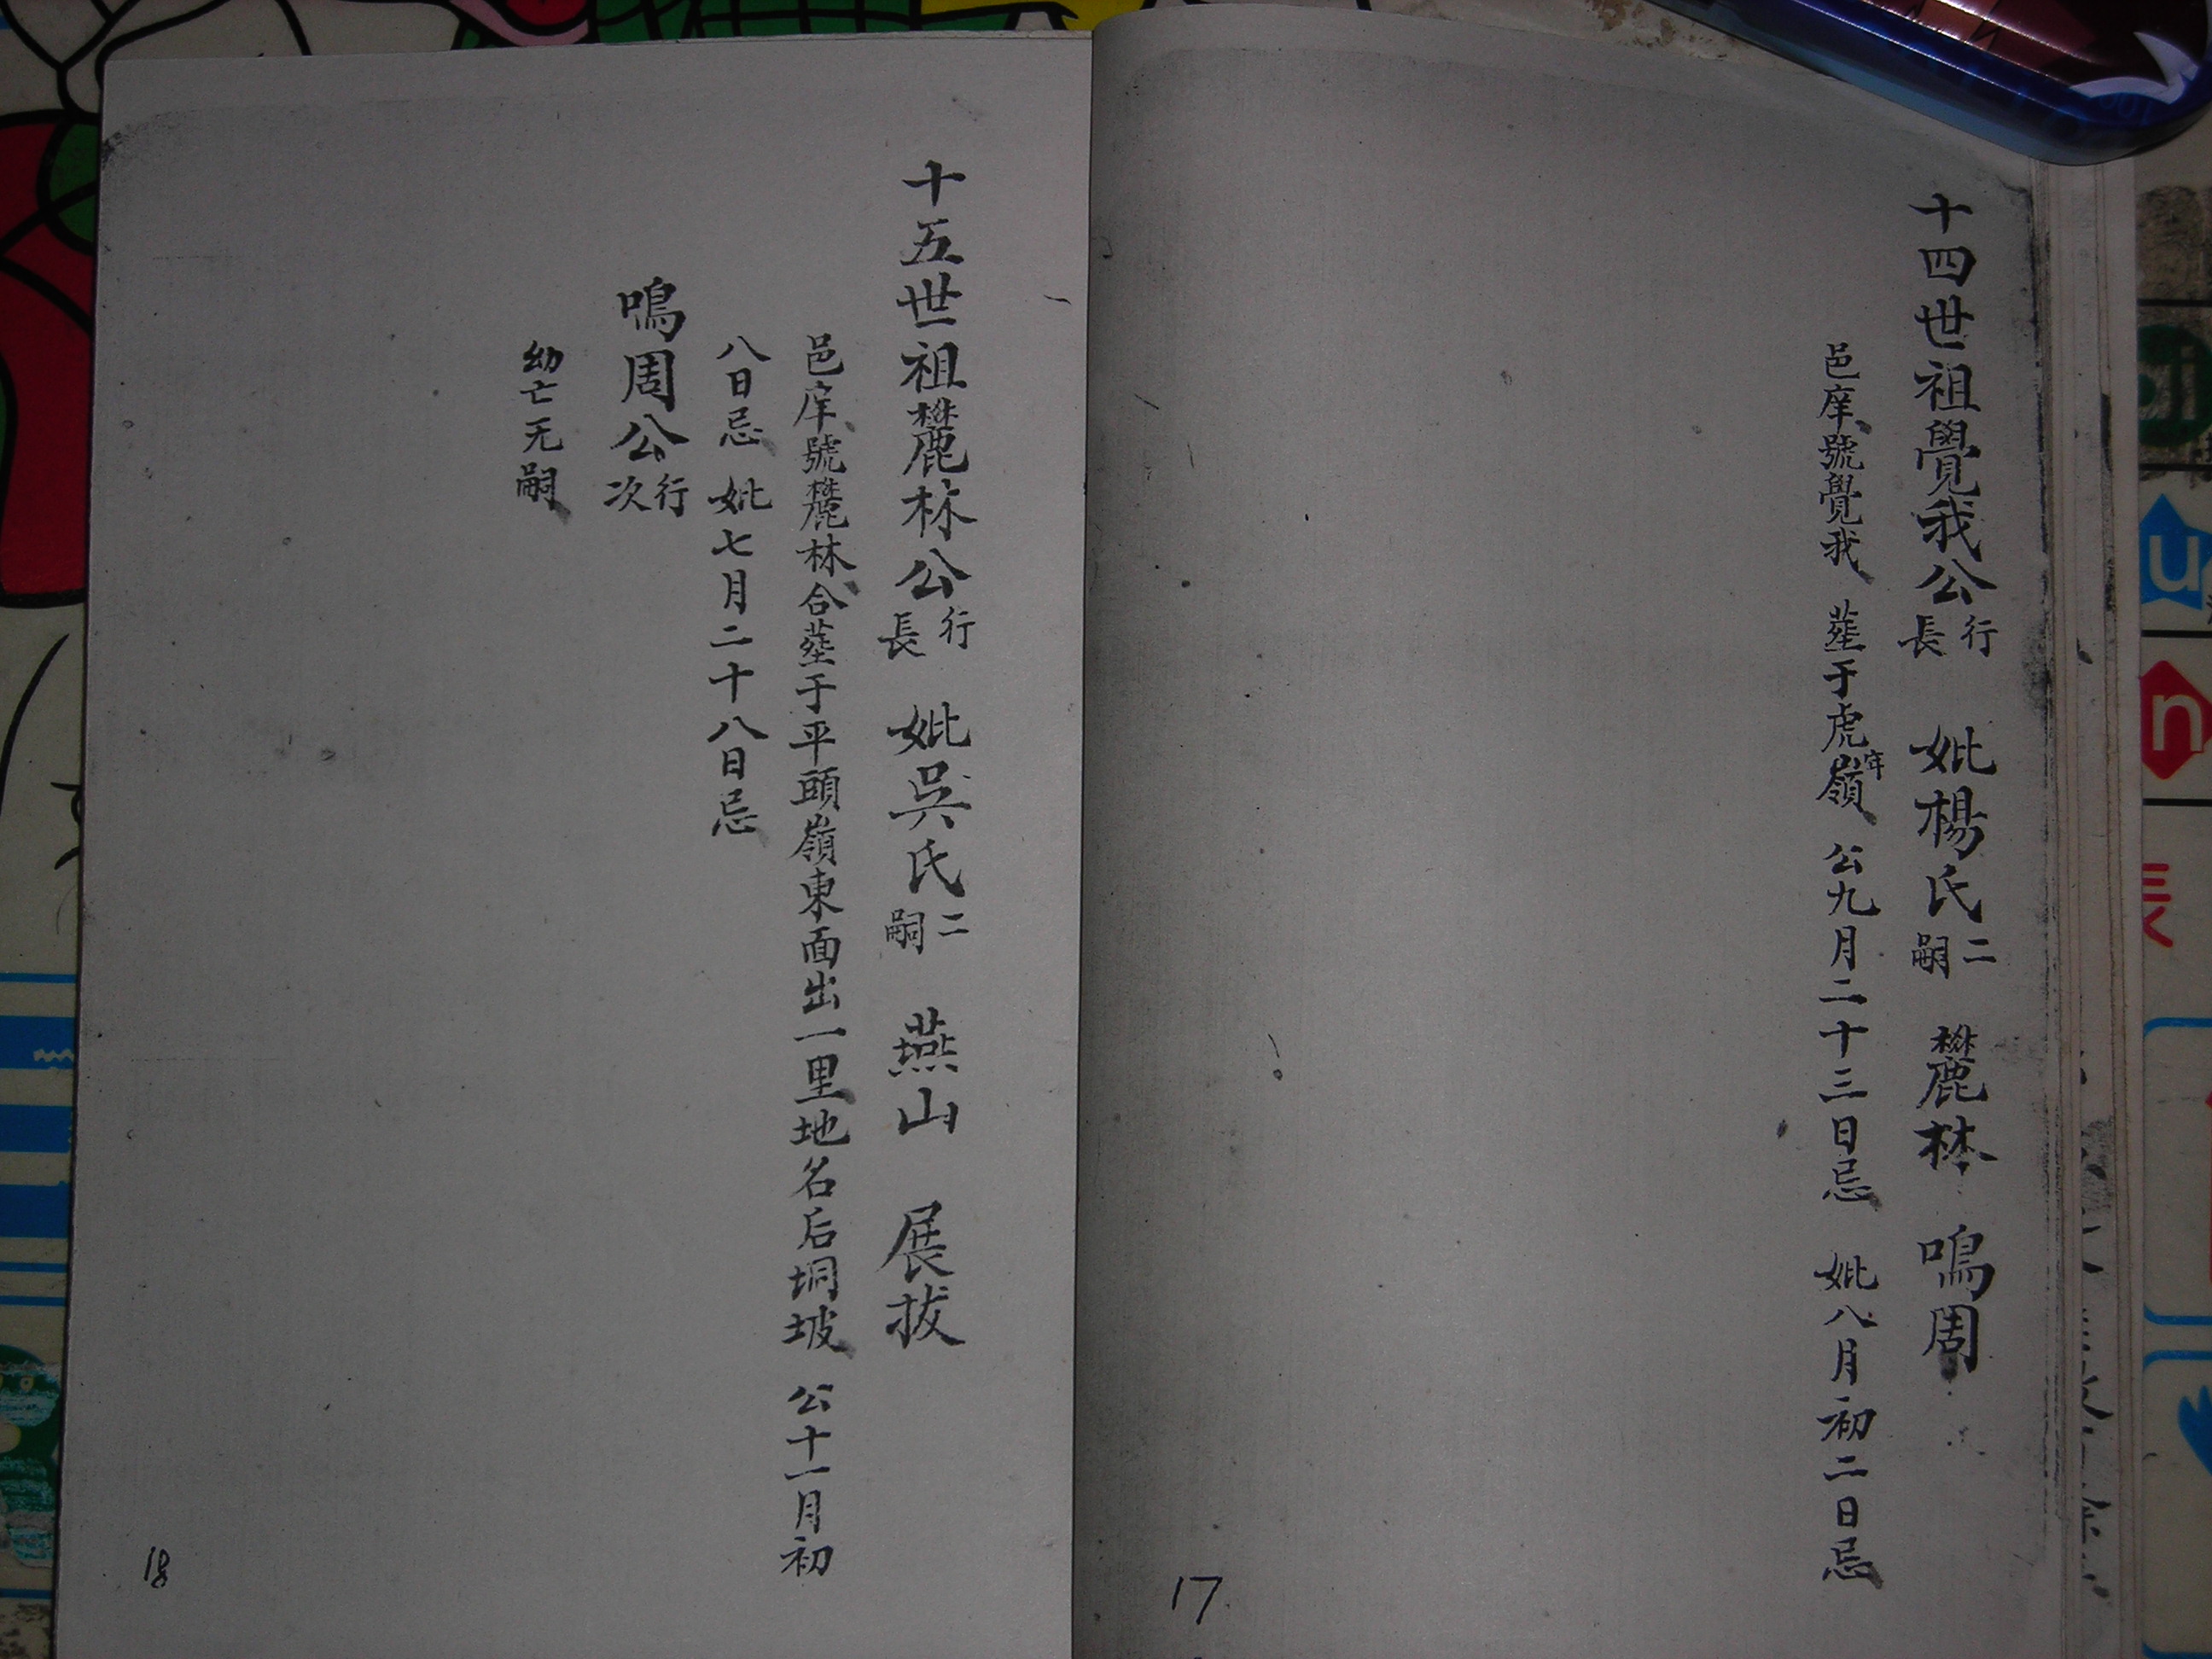 十四世祖覺我公行長 妣楊氏二嗣 麓林 鳴周
邑庠號覺我 塟于虎嶺 公九月二十三日忌 妣八月初二日忌
17
十五世祖麓林公行長 妣吳氏二嗣 燕山 展拔
邑庠號麓林合塟于平頭嶺東面出一里地名后垌坡 公十一月初
八日忌 妣七月二十八日忌
鳴周公行次
幼亡无嗣
18
u
n
表